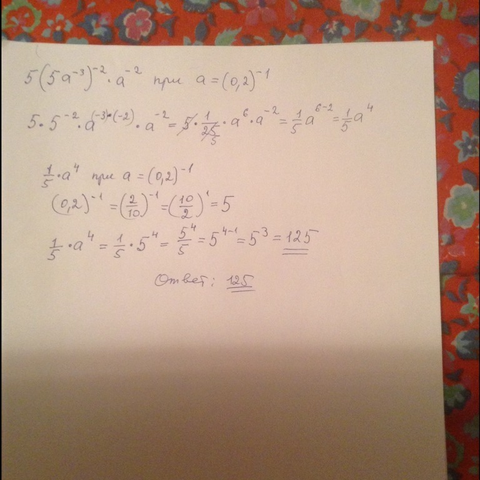 5(5a⁻³)⁻²·a⁻² при a=(0,2)⁻¹
5·5⁻²·a⁽⁻³⁾·⁽⁻²⁾·a⁻²=5·1/25·a⁶·a⁻²=1/5a⁶⁻²=1/5a⁴
1/5·a⁴ при a=(0,2)⁻¹
(0,2)⁻¹=(2/10)⁻¹=(10/2)¹=5
1/5·a⁴=1/5·5⁴=5⁴/5=5⁴⁻¹=5³=125
Ответ: 125